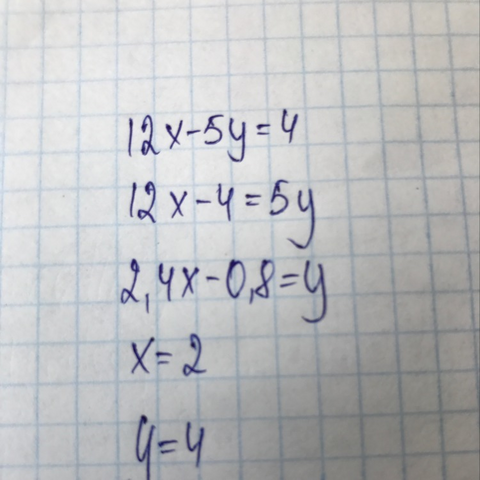 12x-5y=4
12x-4=5y
2,4x-0,8=y
x=2
y=4